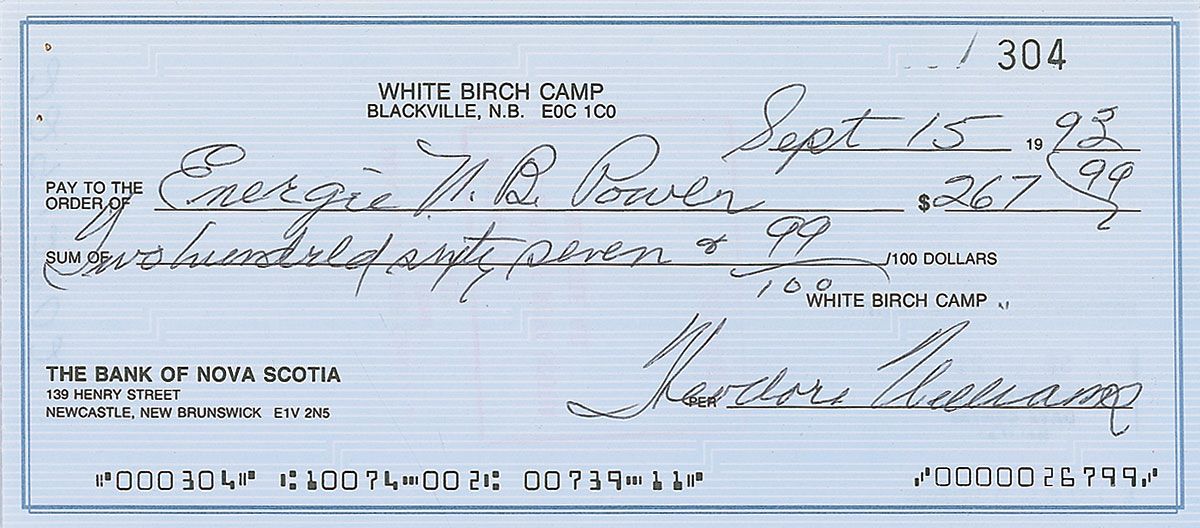 304
WHITE BIRCH CAMP
BLACKVILLE, N.B. E0C 1C0
Sept 15 19 93
PAY TO THE ORDER OF Energie N. B. Power $ 267 99
SUM OF Two hundred sixty seven & 99/100 /100 DOLLARS
WHITE BIRCH CAMP
THE BANK OF NOVA SCOTIA
139 HENRY STREET
NEWCASTLE, NEW BRUNSWICK E1V 2N5
PER Theodore Williams
⑈000304⑈ ⑆10074⑉002⑆ 00739⑉11⑈ ⑇0000026799⑇